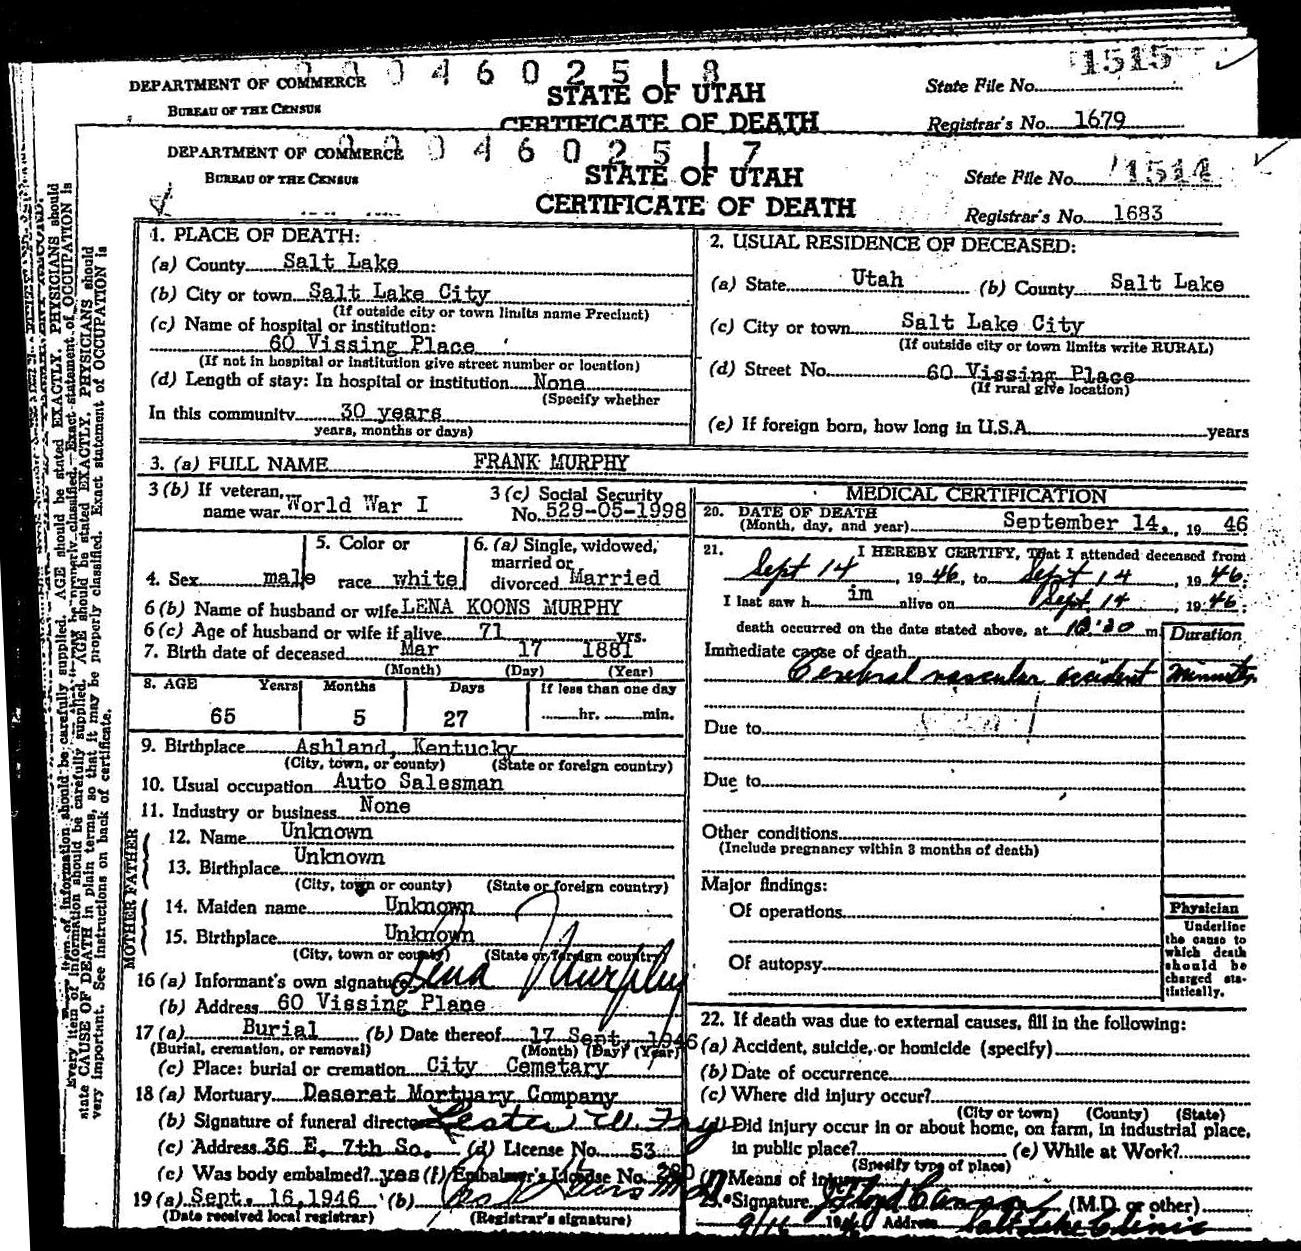 DEPARTMENT OF COMMERCE
BUREAU OF THE CENSUS
0 0 0 4 6 0 2 5 1 8
STATE OF UTAH
CERTIFICATE OF DEATH
State File No. 1515
Registrar's No. 1679
DEPARTMENT OF COMMERCE
BUREAU OF THE CENSUS
0 4 6 0 2 5 1 7
STATE OF UTAH
CERTIFICATE OF DEATH
State File No. 1514
Registrar's No. 1683
Every item of information should be carefully supplied. AGE should be stated EXACTLY. PHYSICIANS should
state CAUSE OF DEATH in plain terms, so that it may be properly classified. Exact statement of OCCUPATION is
very important. See instructions on back of certificate.
1. PLACE OF DEATH:
(a) County Salt Lake
(b) City or town Salt Lake City
(If outside city or town limits name Precinct)
(c) Name of hospital or institution:
60 Vissing Place
(If not in hospital or institution give street number or location)
(d) Length of stay: In hospital or institution None
(Specify whether
In this community 30 years
years, months or days)
2. USUAL RESIDENCE OF DECEASED:
(a) State Utah (b) County Salt Lake
(c) City or town Salt Lake City
(If outside city or town limits write RURAL)
(d) Street No. 60 Vissing Place
(If rural give location)
(e) If foreign born, how long in U.S.A. years
3. (a) FULL NAME FRANK MURPHY
3 (b) If veteran, name war World War I
3 (c) Social Security No. 529-05-1998
4. Sex male
5. Color or race white
6. (a) Single, widowed, married or divorced Married
6 (b) Name of husband or wife LENA KOONS MURPHY
6 (c) Age of husband or wife if alive 71 yrs.
7. Birth date of deceased Mar 17 1881
(Month) (Day) (Year)
8. AGE Years Months Days If less than one day
65 5 27 hr. min.
9. Birthplace Ashland, Kentucky
(City, town, or county) (State or foreign country)
10. Usual occupation Auto Salesman
11. Industry or business None
FATHER
12. Name Unknown
13. Birthplace Unknown
(City, town or county) (State or foreign country)
MOTHER
14. Maiden name Unknown
15. Birthplace Unknown
(City, town or county) (State or foreign country)
16 (a) Informant's own signature Lena Murphy
(b) Address 60 Vissing Plane
17 (a) Burial (b) Date thereof 17 Sept. 1946
(Burial, cremation, or removal) (Month) (Day) (Year)
(c) Place: burial or cremation City Cemetary
18 (a) Mortuary Deseret Mortuary Company
(b) Signature of funeral director Lester W. Fry
(c) Address 36 E. 7th So. (d) License No. 53
(e) Was body embalmed? yes (f) Embalmer's License No. 280
19 (a) Sept. 16,1946 (b)
(Date received local registrar) (Registrar's signature)
MEDICAL CERTIFICATION
20. DATE OF DEATH
(Month, day, and year) September 14, 19 46
21. I HEREBY CERTIFY, That I attended deceased from
Sept 14, 1946, to Sept 14, 1946;
I last saw him alive on Sept 14 1946;
death occurred on the date stated above, at m.
Duration
Immediate cause of death
Cerebral vascular accident minutes
Due to
Due to
Other conditions
(Include pregnancy within 3 months of death)
Major findings:
Of operations
Of autopsy
Physician
Underline
the cause to
which death
should be
charged sta-
tistically.
22. If death was due to external causes, fill in the following:
(a) Accident, suicide, or homicide (specify)
(b) Date of occurrence
(c) Where did injury occur?
(City or town) (County) (State)
(d) Did injury occur in or about home, on farm, in industrial place,
in public place? (e) While at Work?
(Specify type of place)
(f) Means of injury
23. Signature (M.D. or other)
9/16 1946 Address Salt Lake Clinic